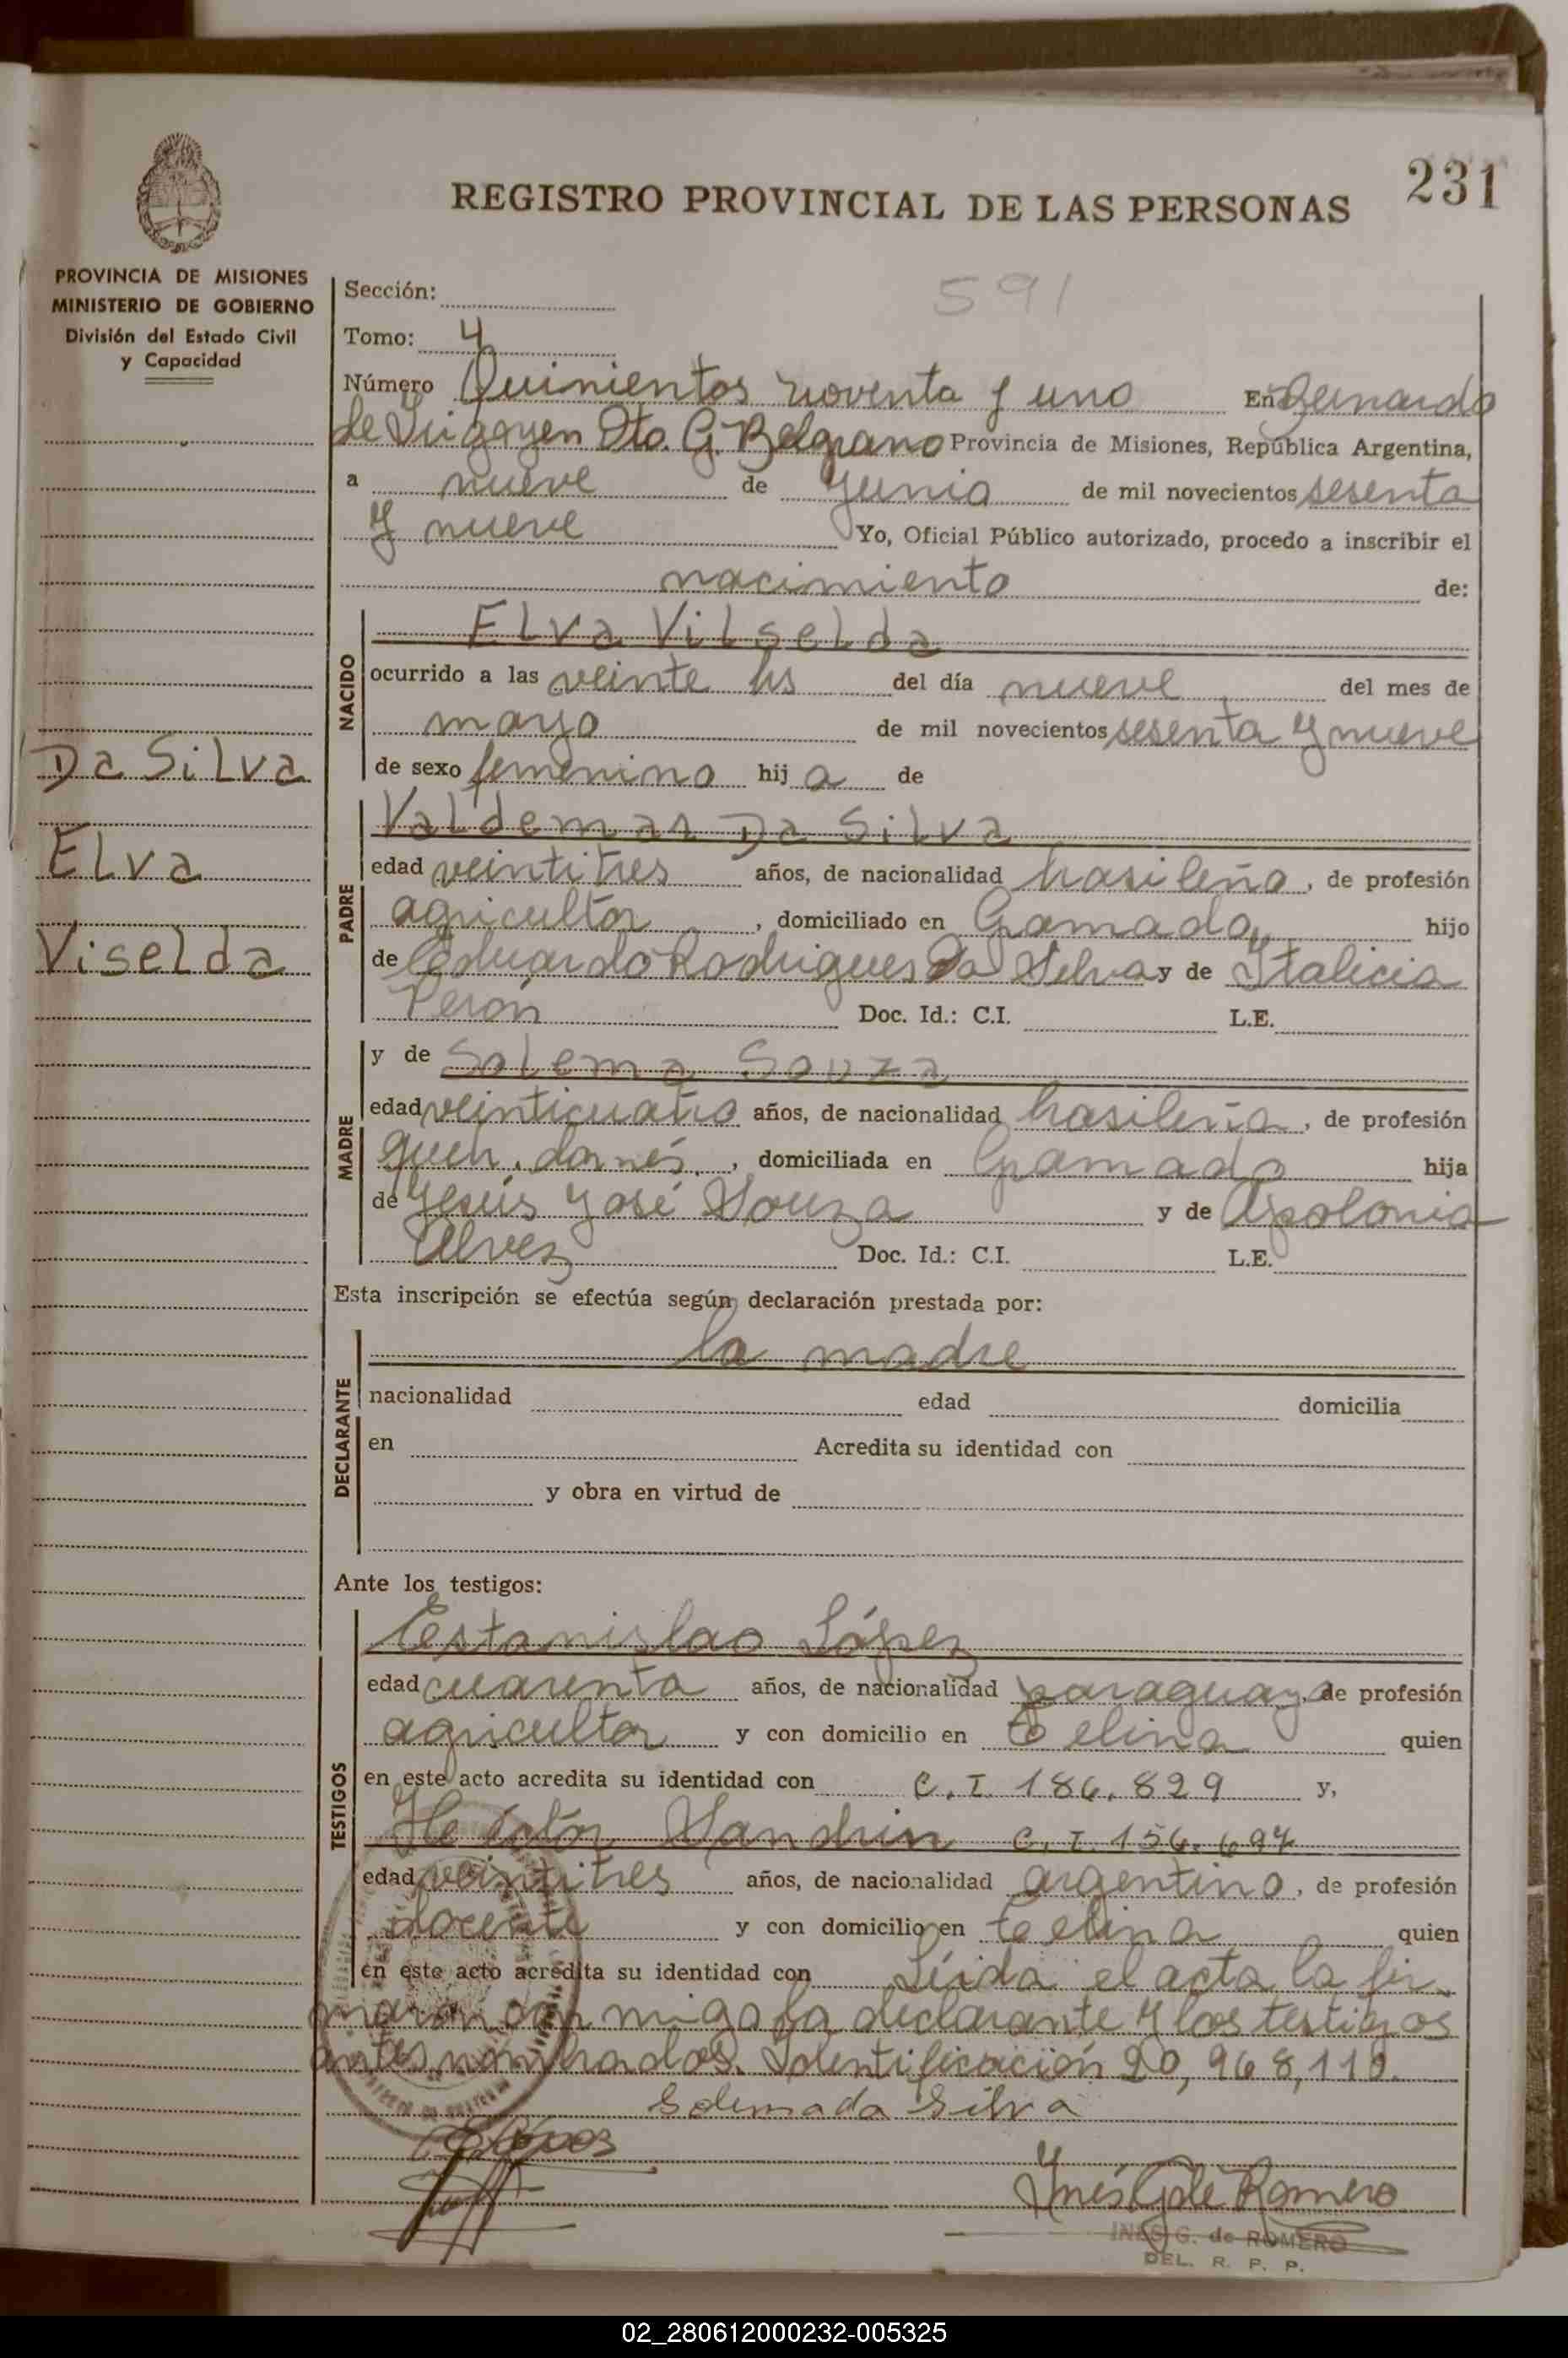 231
REGISTRO PROVINCIAL DE LAS PERSONAS
PROVINCIA DE MISIONES
MINISTERIO DE GOBIERNO
División del Estado Civil
y Capacidad
591
Sección:
Tomo: 4
Número Quinientos noventa y uno En Bernardo
de Yrigoyen Dto. G. Belgrano Provincia de Misiones, República Argentina,
a nueve de Junio de mil novecientos sesenta
y nueve Yo, Oficial Público autorizado, procedo a inscribir el
nacimiento de:
NACIDO
Elva Vilselda
ocurrido a las veinte hs del día nueve del mes de
mayo de mil novecientos sesenta y nueve
de sexo femenino hij a de
Da Silva
Elva
Viselda
PADRE
Valdemar Da Silva
edad veintitres años, de nacionalidad brasileña, de profesión
agricultor, domiciliado en Gramado, hijo
de Eduardo Rodrigues Da Silva y de Italicia
Perón Doc. Id.: C.I. L.E.
MADRE
y de Solema Souza
edad veinticuatro años, de nacionalidad brasileña, de profesión
queh. domés., domiciliada en Gramado hija
de Jesús José Souza y de Apolonia
Alvez Doc. Id.: C.I. L.E.
Esta inscripción se efectúa según declaración prestada por:
DECLARANTE
la madre
nacionalidad edad domicilia
en Acredita su identidad con
y obra en virtud de
Ante los testigos:
TESTIGOS
Estanislao López
edad cuarenta años, de nacionalidad paraguaya, de profesión
agricultor y con domicilio en Celina quien
en este acto acredita su identidad con C.I. 186.829 y,
Hector Sandrin C.I. 156.694
edad veintitres años, de nacionalidad argentino, de profesión
docente y con domicilio en Celina quien
en este acto acredita su identidad con Leída el acta la fir-
maron con migo la declarante y los testigos
antes nombrados. Identificación 20,968,110.
Solema da Silva
Inés G de Romero
INES G. de ROMERO
DEL. R. P. P.
02_280612000232-005325